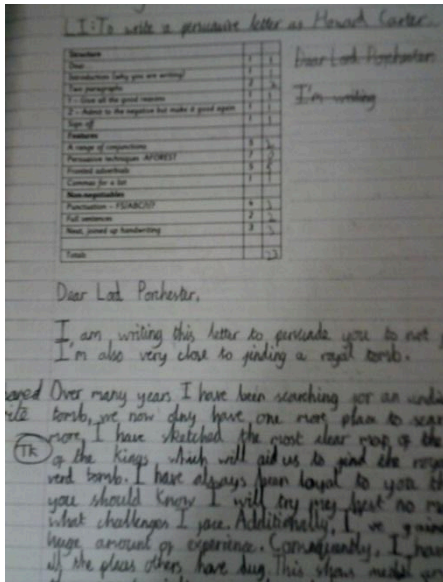 LI: To write a persuasive letter as Howard Carter.
Dear Lord Porchester
I'm writing
Structure
Dear 1 1
Introduction (why you are writing) 1 1
Two paragraphs 2
1 – Give all the good reasons 1 1
2 – Admit to the negative but make it good again 1 1
Sign off 1 1
Features
A range of conjunctions 3
Persuasive techniques AFOREST 7
Fronted adverbials
Commas for a list 1 1
Non-negotiables
Punctuation – FS/ABC/!/? 4
Full sentences 2 2
Neat, joined up handwriting 3
Totals 23
Dear Lord Porchester,
I, am writing this letter to persuade you to not
I'm also very close to finding a royal tomb.
Over many years I have been searching for an
tomb, we now only have one more place to
more, I have sketched the most clear map of the
TK of the Kings which will aid us to find the
tomb. I have always been loyal to you
you should know I will try my best no
what challenges I face. Additionally, I've
huge amount of experience. Consequently, I
all the places others have dug. This shows